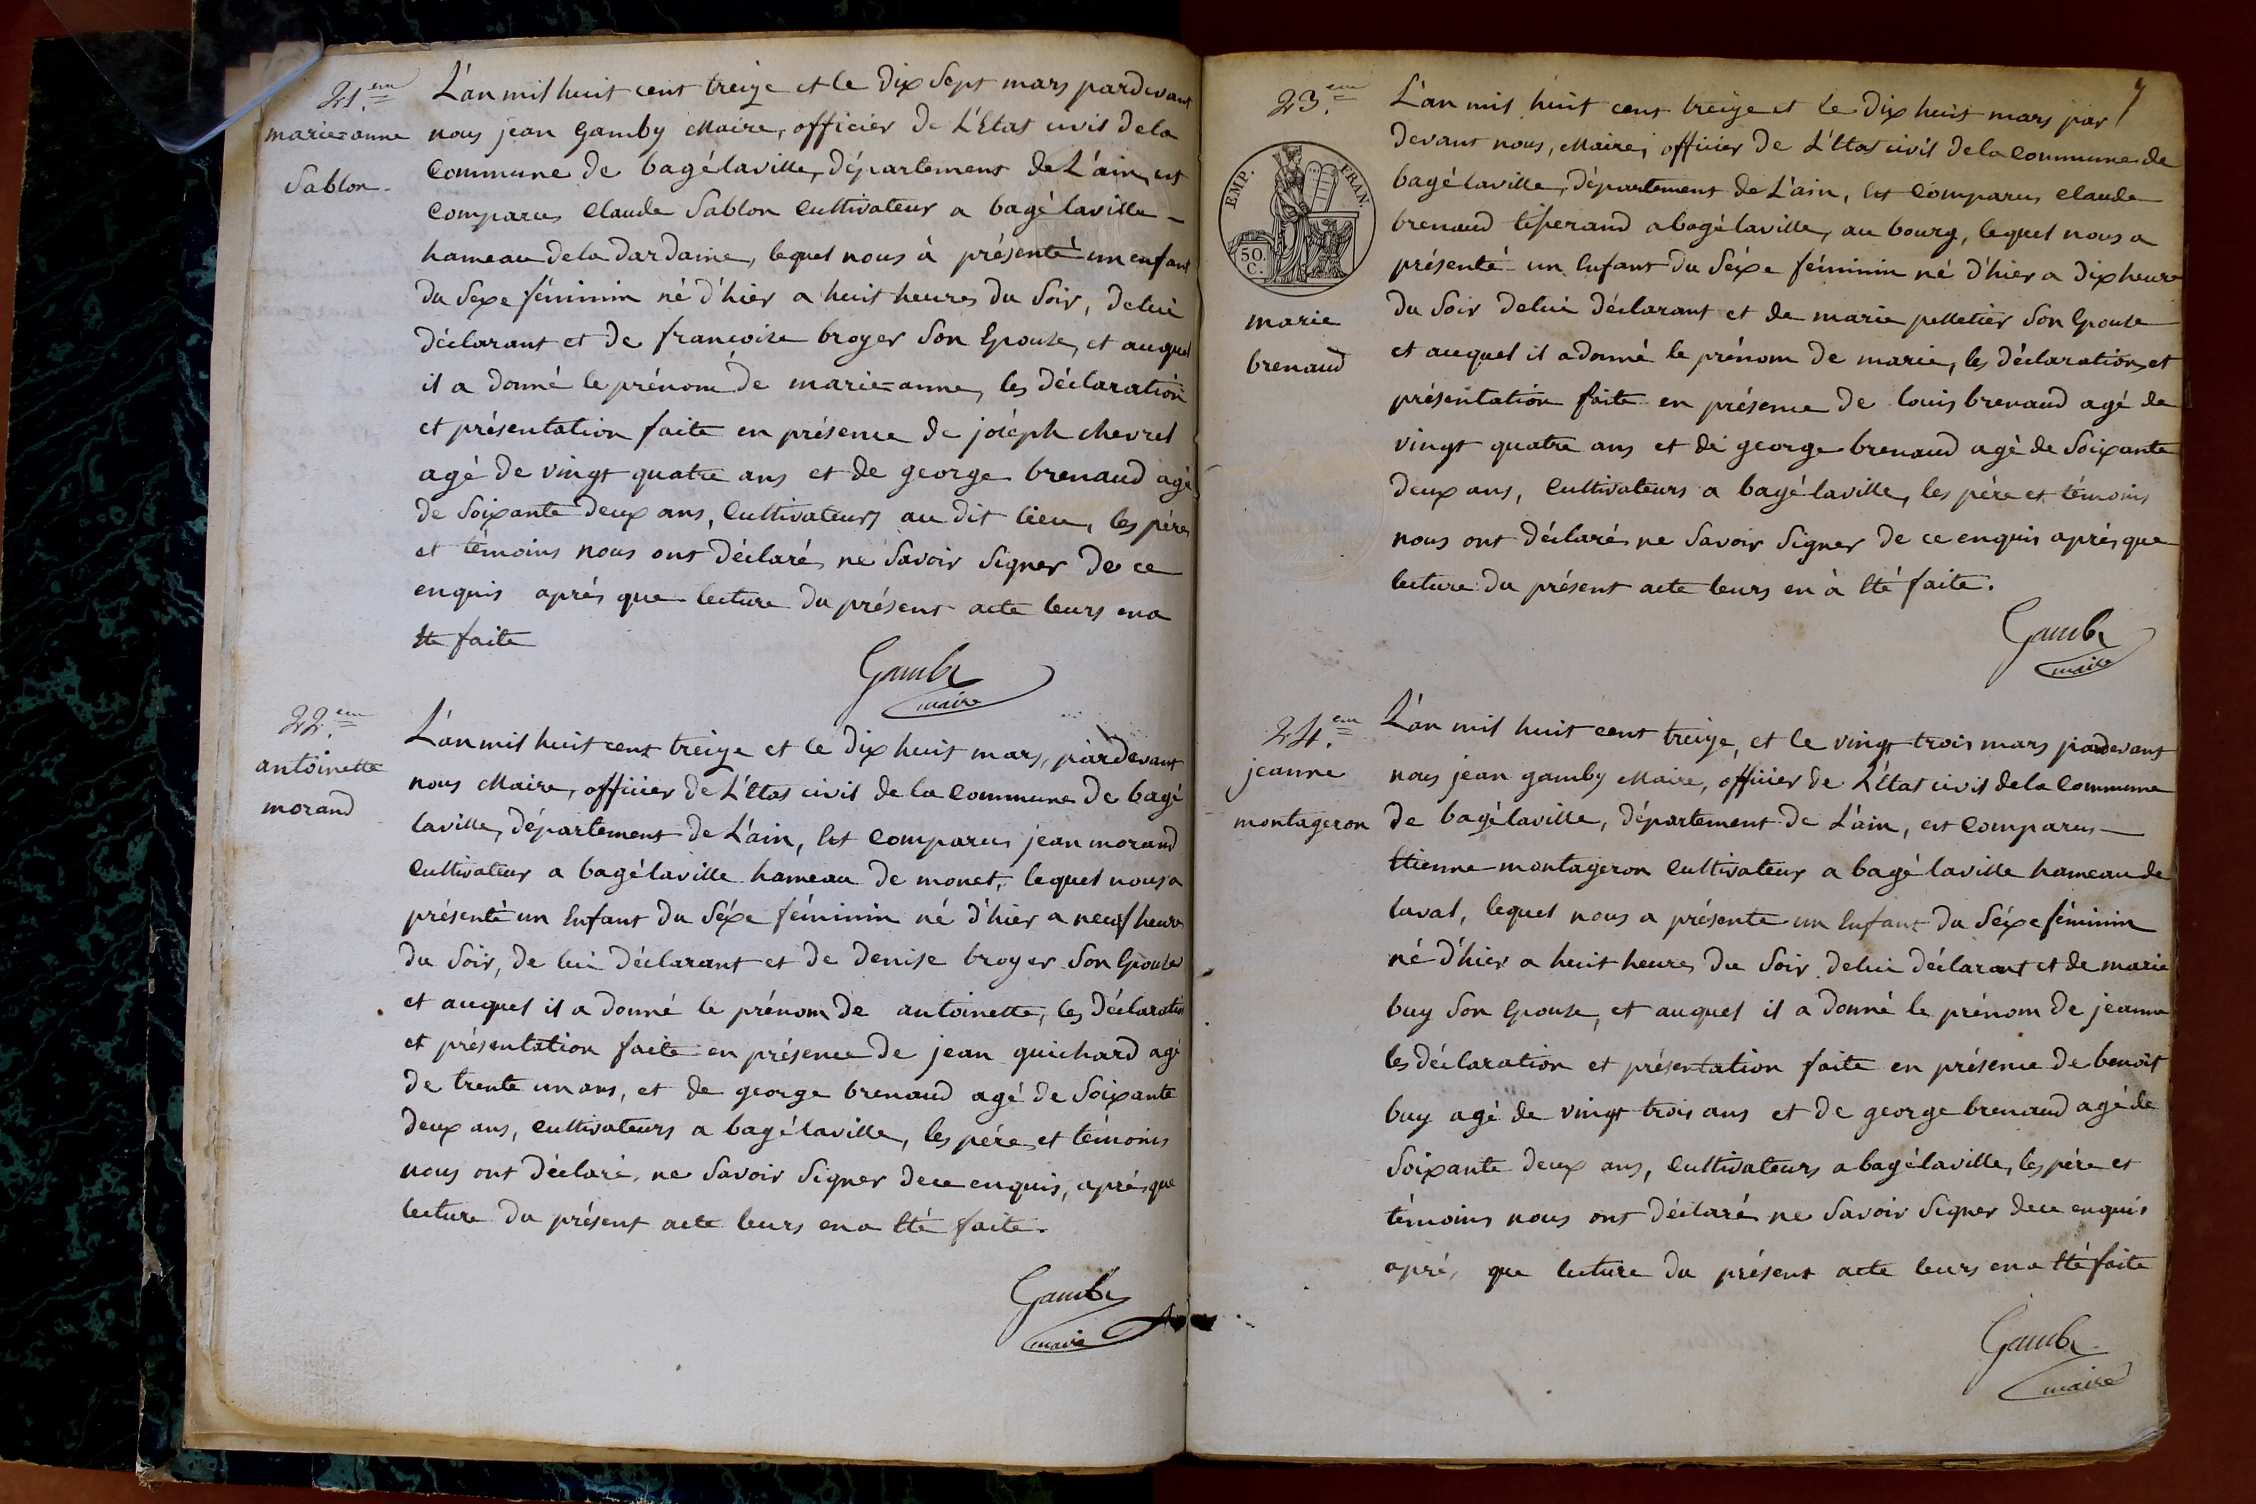 21.em
marie=anne
Sablon.
L'an mil huit cent treize et le dix Sept mars pardevant
nous jean Gamby Maire, officier de L'Etat civil dela
Commune de bagélaville, département de L'ain, est
Comparus Claude Sablon Cultivateur a bagélaville –
hameau dela dardaine, lequel nous à présenté un enfant
du Sexe féminin né d'hier a huit heures du Soir, delui
déclarant et de francoise broyer Son Epouse, et auquel
il a donné le prénom de marie=anne, les déclaration
et présentation faite en présence de joséph chevrel
agé de vingt quatre ans et de george brenaud agé
de Soixante deux ans, Cultivateurs au dit lieu, les père
et témoins nous ont déclarés ne Savoir Signer de ce
enquis après que lecture du présent acte leurs en a
été faite
Gamby
maire
22.em
antoinette
morand
L'an mil huit cent treize et le dix huit mars, pardevant
nous Maire, officier de L'Etat civil de la Commune de bagé
laville, département de L'ain, Est Comparus jean morand
Cultivateur a bagélaville hameau de monet, lequel nous a
présenté un Enfant du Séxe féminin né d'hier a neuf heure
du Soir, de lui déclarant et de denise broyer Son Epouse
et auquel il a donné le prénom de antoinette, les déclaration
et présentation faite en présence de jean guichard agé
de trente un ans, et de george brenaud agé de Soixante
deux ans, Cultivateurs a bagélaville, les père et témoins
nous ont déclaré ne Savoir Signer dece enquis, après que
lecture du présent acte leurs en a Eté faite.
Gamby
maire
7
23.em
EMP. FRAN.
50.
C.
marie
brenaud
L'an mil huit cent treize et le dix huit mars par
devant nous, Maire, officier de L'Etat civil dela Commune de
bagélaville, département de L'ain, Est Comparus Claude
brenaud tisserand a bagélaville, au bourg, lequel nous a
présenté un Enfant du Séxe féminin né d'hier a dix heure
du Soir delui déclarant et de marie pelletier Son Epouse
et auquel il a donné le prénom de marie, les déclaration et
présentation faite en présence de louis brenaud agé de
vingt quatre ans et de george brenaud agé de Soixante
deux ans, Cultivateurs a bagélaville, les père et témoins
nous ont déclarés ne Savoir Signer de ce enquis après que
lecture du présent acte leurs en à Eté faite.
Gamby
maire
24.em
jeanne
montageron
L'an mil huit cent treize, et le vingt trois mars pardevant
nous jean gamby Maire, officier de L'Etat civil dela Commune
de bagélaville, département de L'ain, est Comparus –
Etienne montageron Cultivateur a bagélaville hameau de
laval, lequel nous a présenté un Enfant du Séxe féminin
né d'hier a huit heures du Soir delui déclarant et de marie
buy Son Epouse, et auquel il a donné le prénom de jeanne
les déclaration et présentation faite en présence de benoit
buy agé de vingt trois ans et de george brenaud agé de
Soixante deux ans, Cultivateurs a bagélaville, les père et
témoins nous ont déclarés ne Savoir Signer dece enquis
après que lecture du présent acte leurs en a Eté faite
Gamby
maire